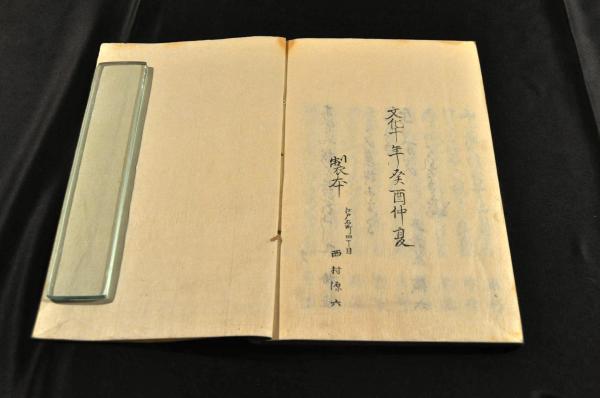 文化十年癸酉仲夏
製本
江戸本町四丁目
西村源六